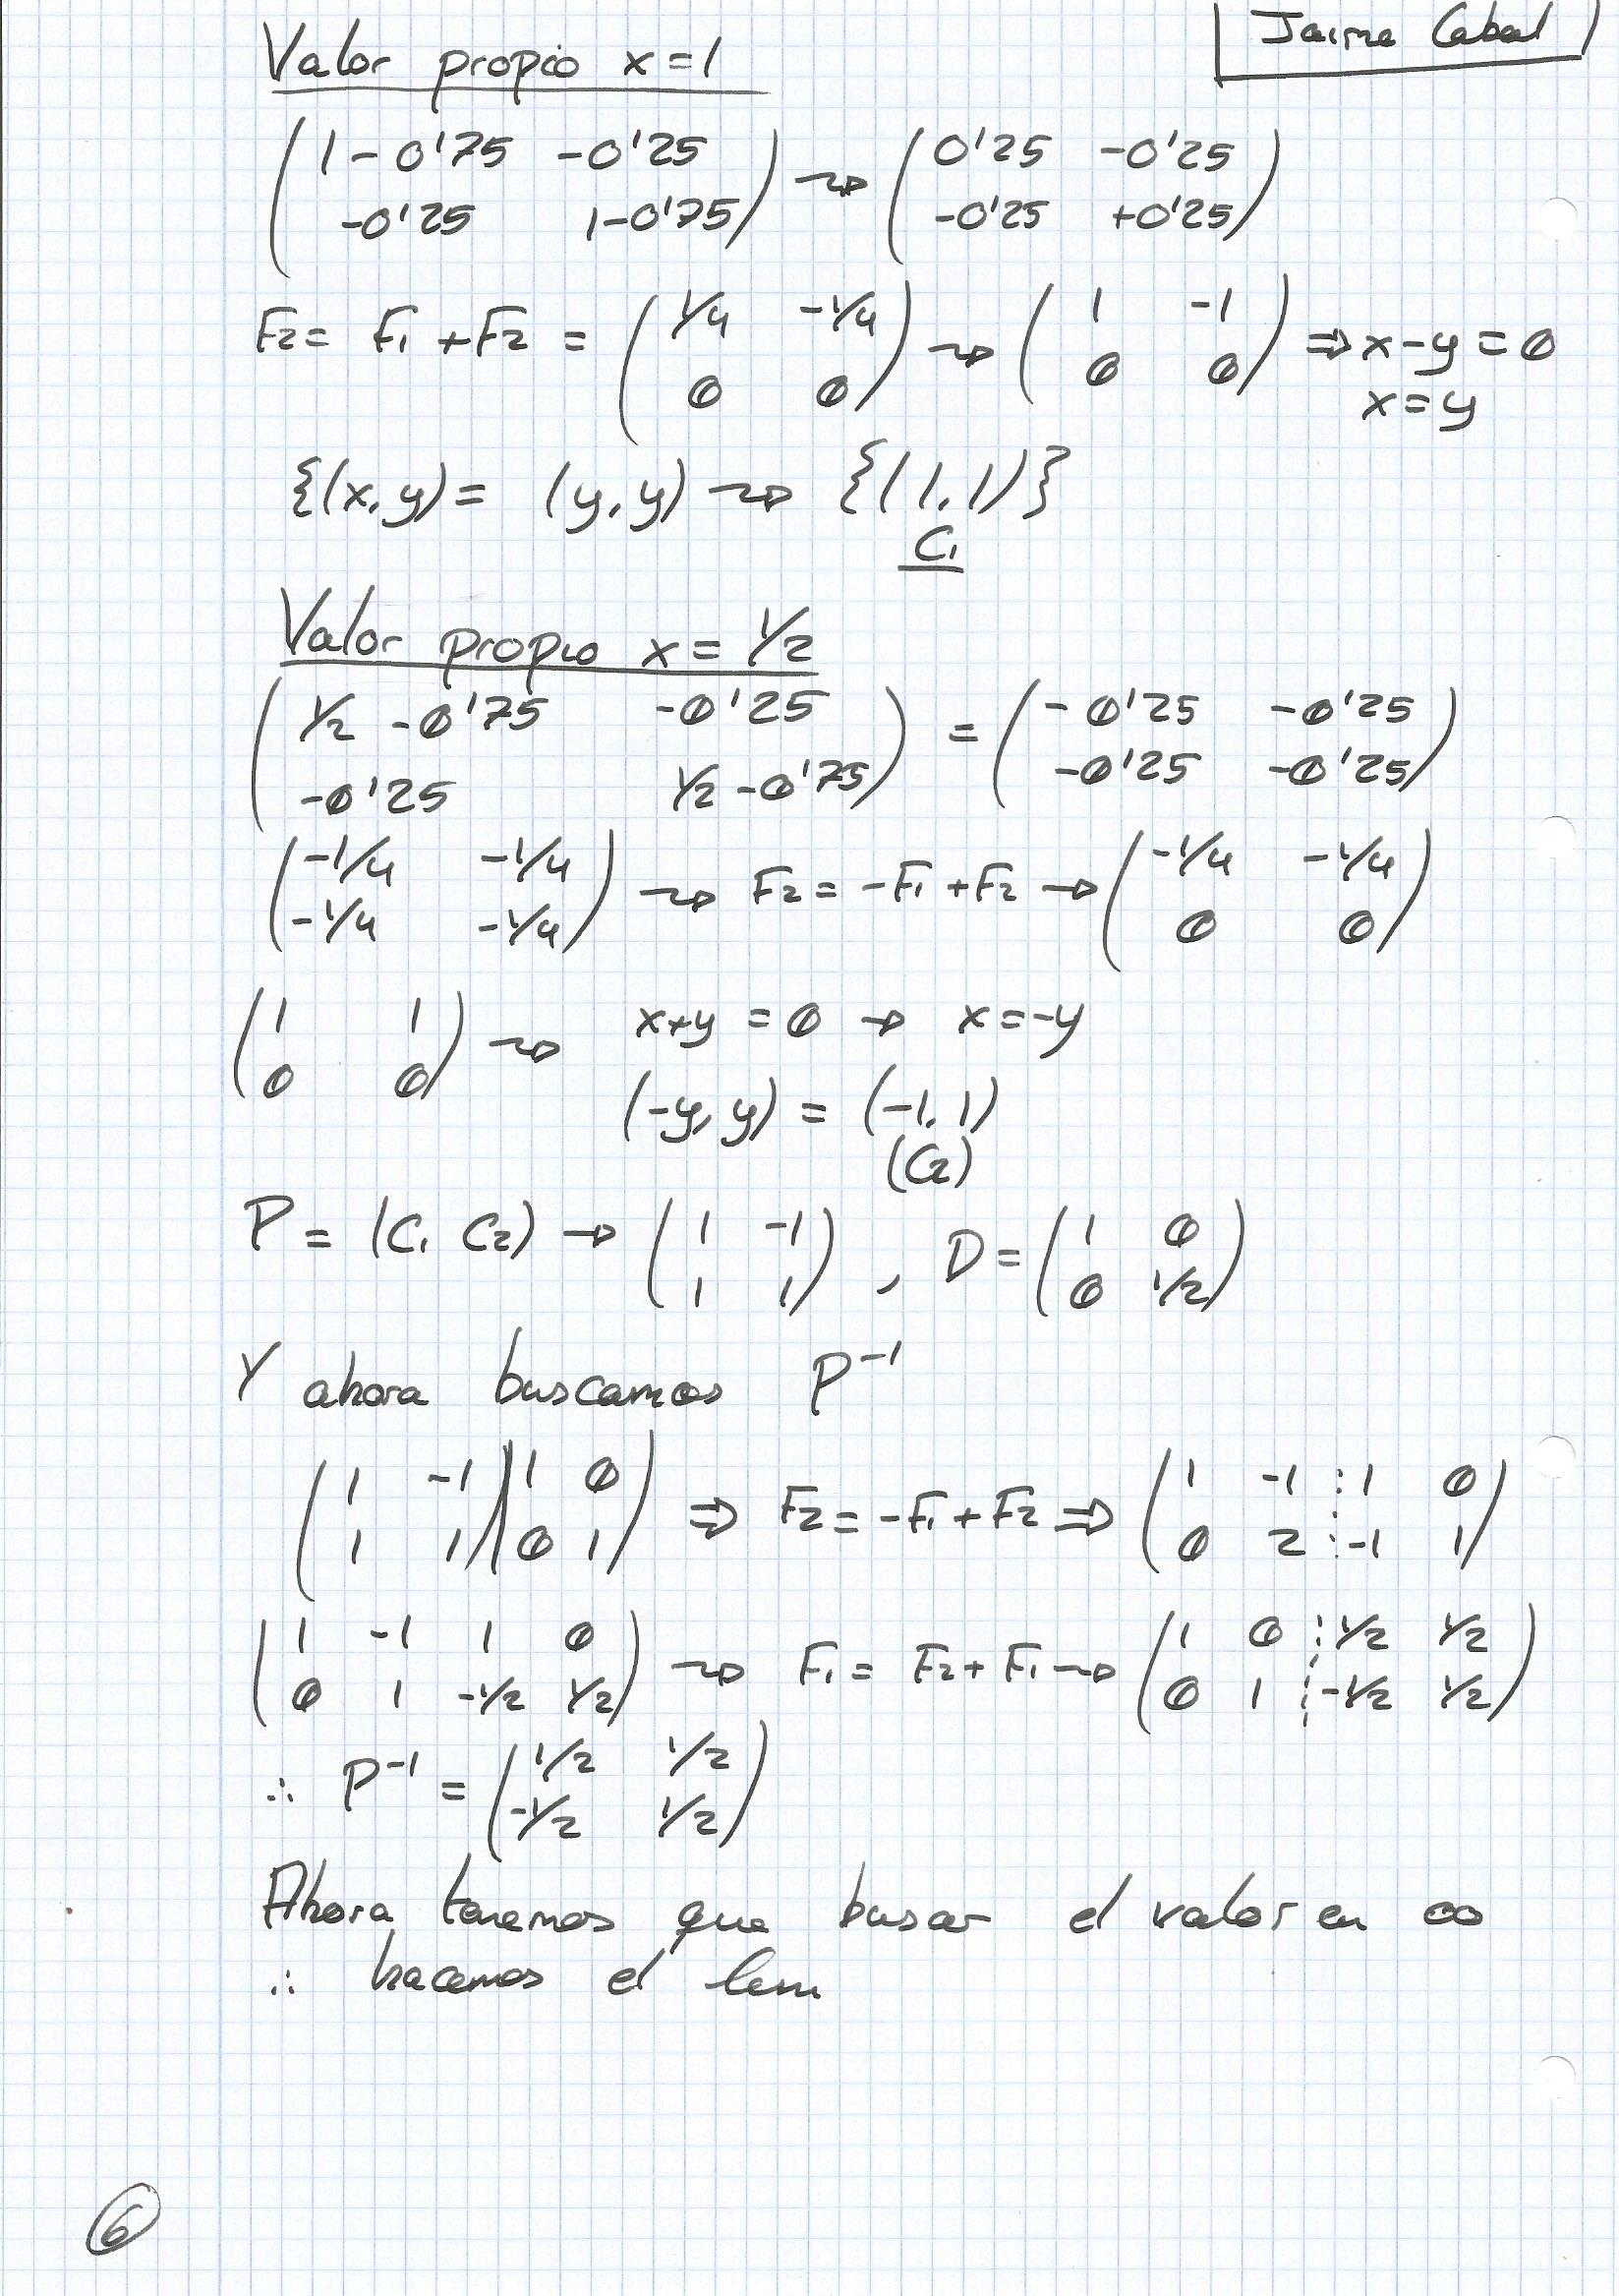 Jaime Cabal
Valor propio x=1
( 1-0'75 -0'25 ; -0'25 1-0'75 ) ⇝ ( 0'25 -0'25 ; -0'25 +0'25 )
F2 = F1 + F2 = ( 1/4 -1/4 ; 0 0 ) ⇝ ( 1 -1 ; 0 0 ) ⇒ x-y=0
x=y
{(x,y) = (y,y) ⇝ {(1,1)}
C1
Valor propio x = 1/2
( 1/2 -0'75 -0'25 ; -0'25 1/2 -0'75 ) = ( -0'25 -0'25 ; -0'25 -0'25 )
( -1/4 -1/4 ; -1/4 -1/4 ) ⇝ F2 = -F1 + F2 → ( -1/4 -1/4 ; 0 0 )
( 1 1 ; 0 0 ) ⇝ x+y = 0 → x = -y
(-y, y) = (-1, 1)
(C2)
P = (C1 C2) → ( 1 -1 ; 1 1 ) , D = ( 1 0 ; 0 1/2 )
Y ahora buscamos P^-1
( 1 -1 | 1 0 ; 1 1 | 0 1 ) ⇒ F2 = -F1 + F2 ⇒ ( 1 -1 ⋮ 1 0 ; 0 2 ⋮ -1 1 )
( 1 -1 1 0 ; 0 1 -1/2 1/2 ) ⇝ F1 = F2 + F1 ⇝ ( 1 0 ⋮ 1/2 1/2 ; 0 1 ⋮ -1/2 1/2 )
∴ P^-1 = ( 1/2 1/2 ; -1/2 1/2 )
Ahora tenemos que buscar el valor en ∞
∴ hacemos el lim
6